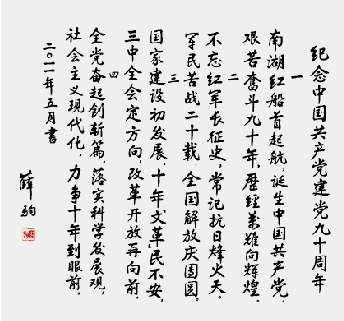 纪念中国共产党建党九十周年
一
南湖红船首起航，诞生中国共产党，
艰苦奋斗九十年，历经万难向辉煌。
二
不忘红军长征史，常记抗日烽火天，
军民苦战二十载，全国解放庆团圆。
三
国家建设初发展，十年文革民不安，
三中全会定方向，改革开放再向前。
四
全党奋起创新篇，落实科学发展观，
社会主义现代化，力争十年到眼前。
二〇一一年五月书
薛驹